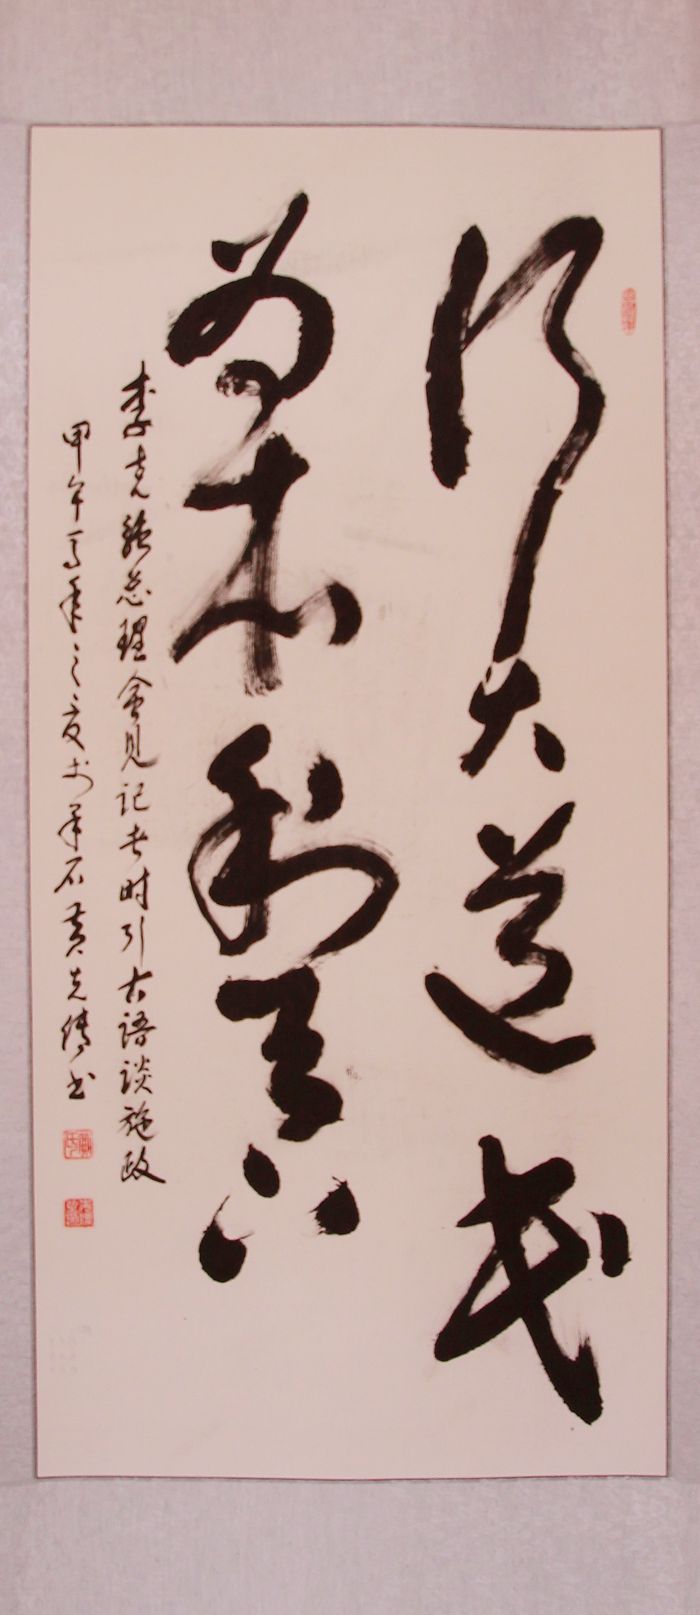 行大道民
为本利天下
李克强总理会见记者时引古语谈施政
甲午马年之夏于羊石黄克传书